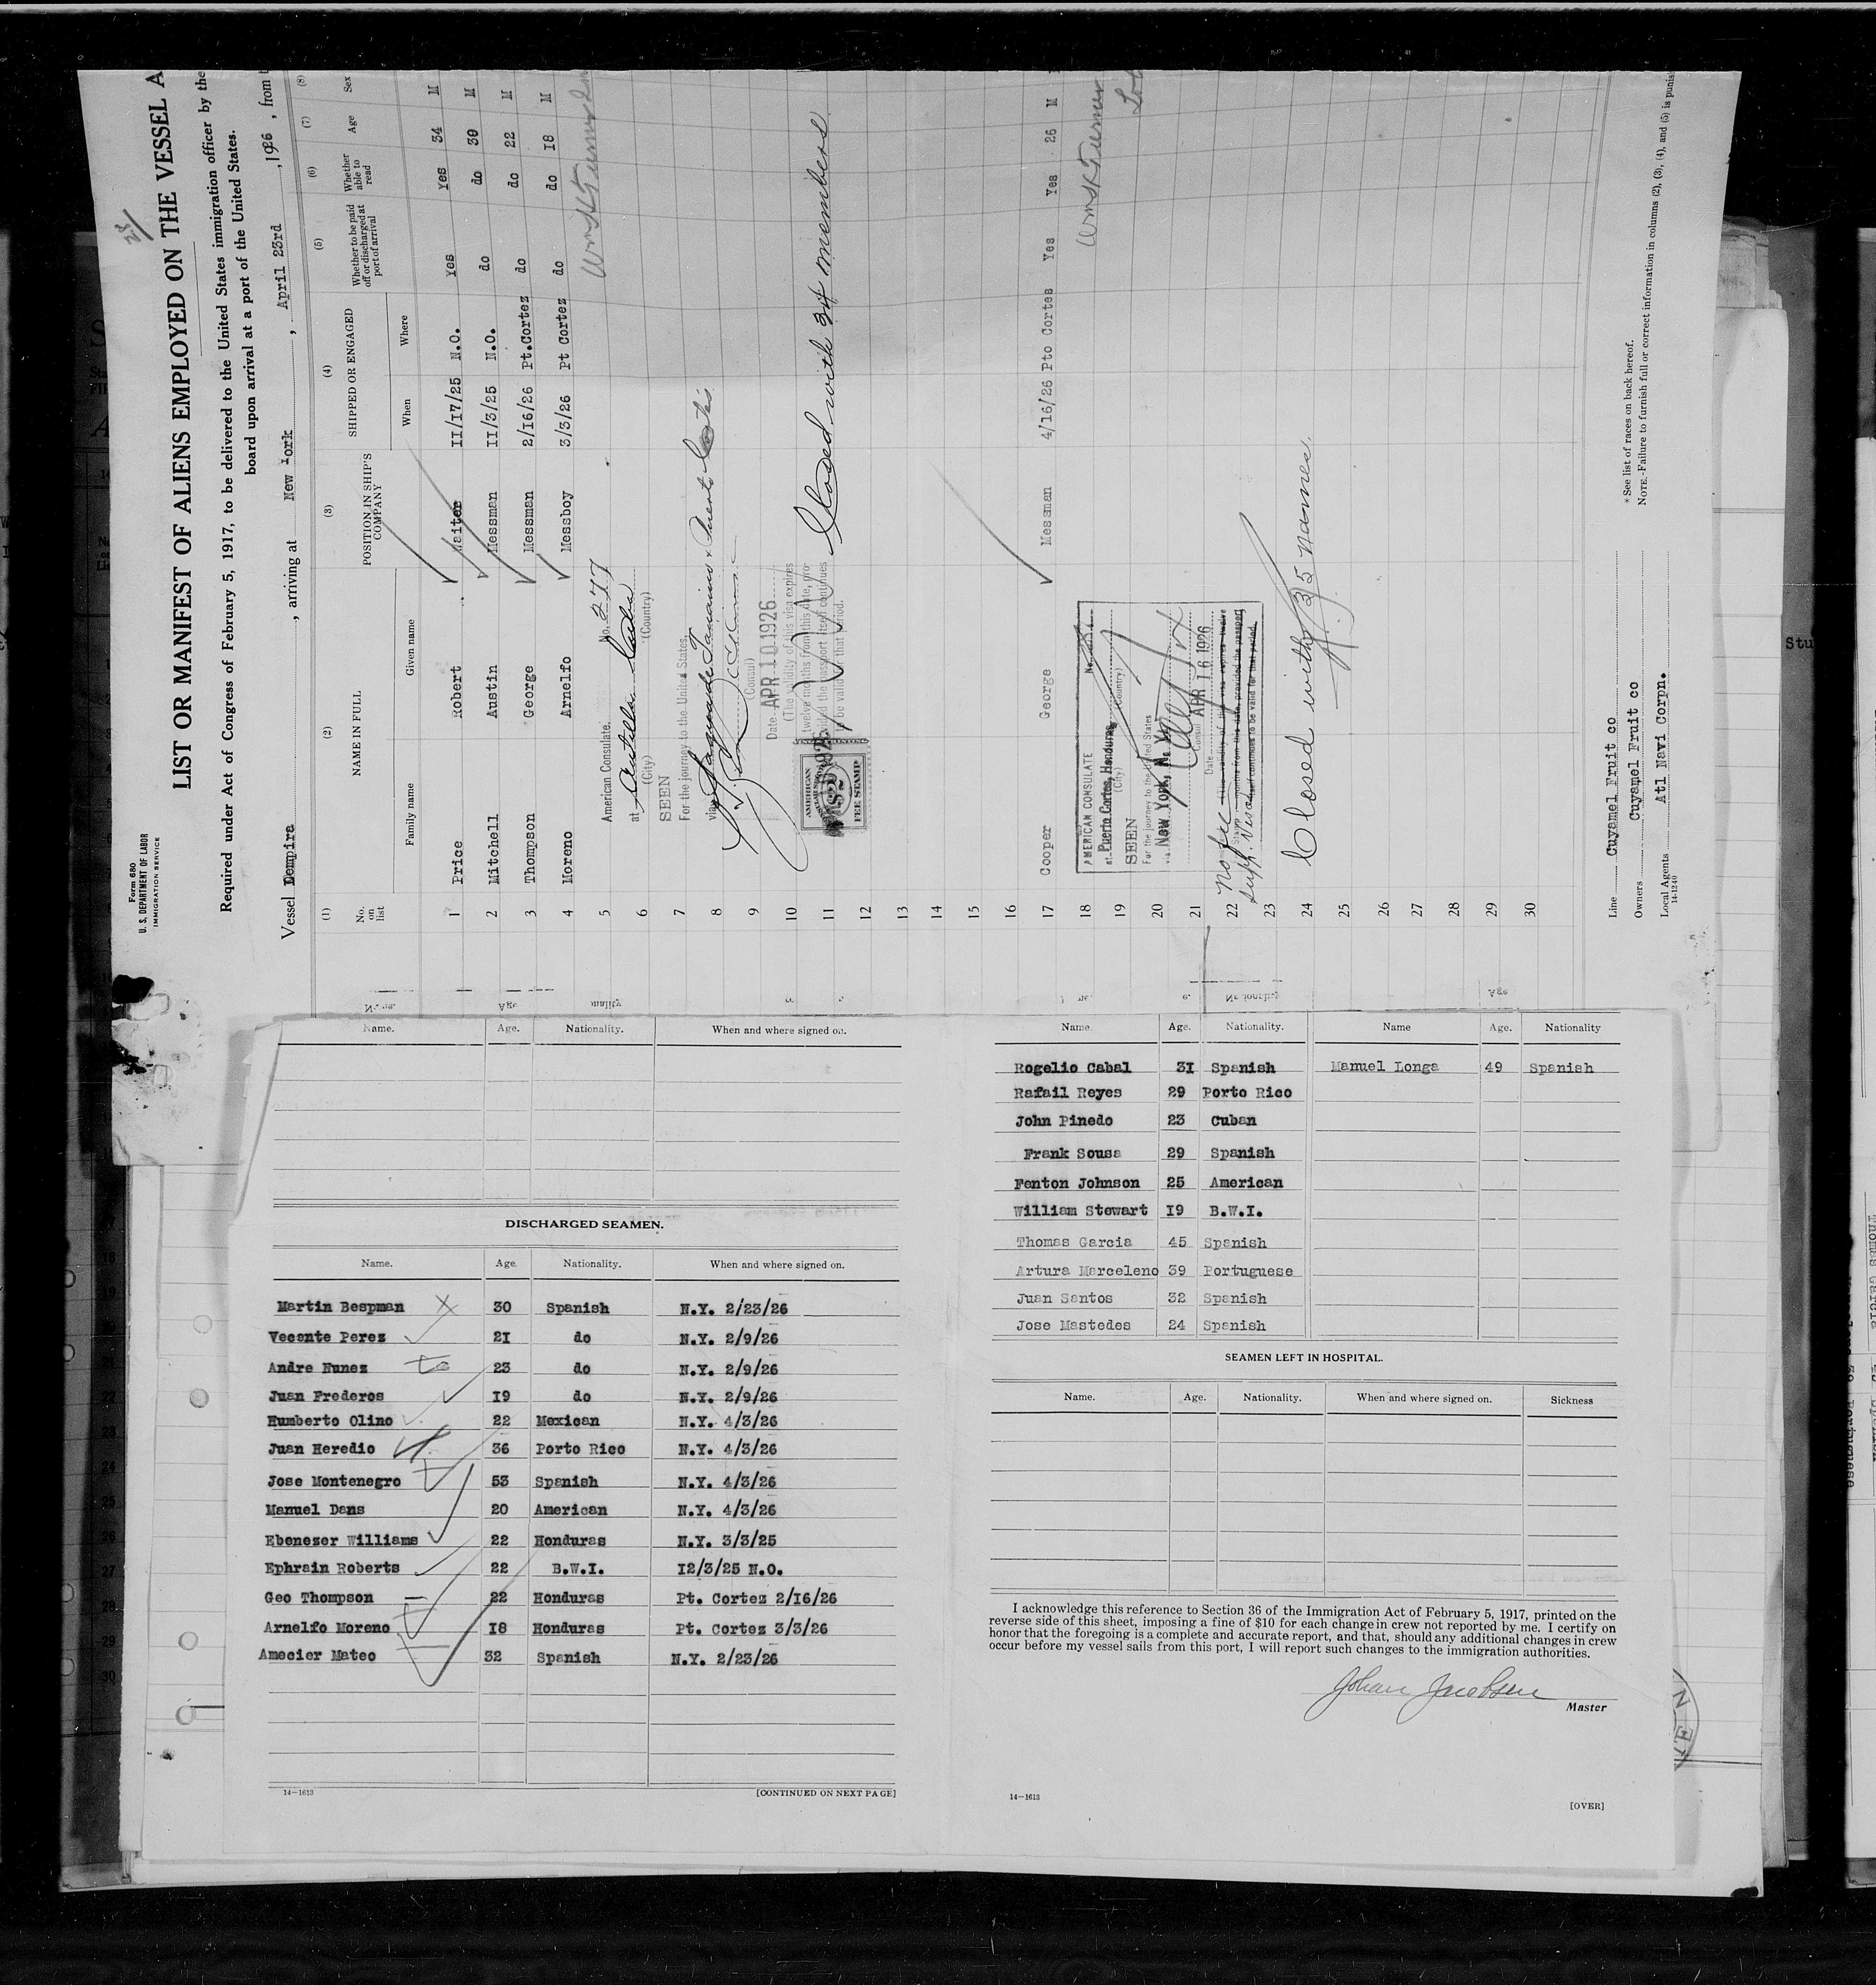 Form 680
U. S. DEPARTMENT OF LABOR
IMMIGRATION SERVICE
LIST OR MANIFEST OF ALIENS EMPLOYED ON THE VESSEL A
Required under Act of Congress of February 5, 1917, to be delivered to the United States immigration officer by the
board upon arrival at a port of the United States.
Vessel Lempira, arriving at New York, April 23rd, 1926, from
(1) (2) (3) (4) (5) (6) (7) (8)
No. on list NAME IN FULL POSITION IN SHIP'S COMPANY SHIPPED OR ENGAGED Whether to be paid off or discharged at port of arrival Whether able to read Age Sex
Family name Given name When Where
1 Price Robert Waiter 11/17/25 N.O. Yes Yes 34 M
2 Mitchell Austin Messman 11/3/25 N.O. do do 30 M
3 Thompson George Messman 2/16/26 Pt.Cortez do do 22 M
4 Moreno Arnelfo Messboy 3/3/26 Pt Cortez do do 18 M
5
6
7
8
9
10
11
12
13
14
15
16
17 Cooper George Messman 4/16/26 Pto Cortes Yes Yes 26 M
18
19
20
21
22
23
24
25
26
27
28
29
30
American Consulate. No. 277
at Antilla Cuba
(City) (Country)
SEEN
For the journey to the United States,
via Jamaica & Puerto Cortes
(Consul)
Date APR 10 1926
(The validity of this visa expires
twelve months from this date, pro-
vided the passport itself continues
to be valid for that period.
AMERICAN
$2
FEE STAMP
Closed with 34 members
AMERICAN CONSULATE No.
at Puerto Cortes, Honduras
(City) (Country)
SEEN
For the journey to the United States
via New York, N. Y.
Consul
Date APR 16 1926
(The validity of this visa expires twelve
months from this date, provided the passport
itself continues to be valid for that period.
No fee
supp. Visa
Closed with 35 names.
Line Cuyamel Fruit co
Owners Cuyamel Fruit co
Local Agents Atl Navi Corpn.
14-1240
* See list of races on back hereof.
NOTE.-Failure to furnish full or correct information in columns (2), (3), (4), and (5) is punis
Name. Age. Nationality. When and where signed on.
DISCHARGED SEAMEN.
Name. Age. Nationality. When and where signed on.
Martin Bespman 30 Spanish N.Y. 2/23/26
Vecente Perez 21 do N.Y. 2/9/26
Andre Nunez 23 do N.Y. 2/9/26
Juan Frederos 19 do N.Y. 2/9/26
Humberto Olino 22 Mexican N.Y. 4/3/26
Juan Heredio 36 Porto Rico N.Y. 4/3/26
Jose Montenegro 53 Spanish N.Y. 4/3/26
Manuel Dans 20 American N.Y. 4/3/26
Ebenezer Williams 22 Honduras N.Y. 3/3/25
Ephrain Roberts 22 B.W.I. 12/3/25 N.O.
Geo Thompson 22 Honduras Pt. Cortez 2/16/26
Arnelfo Moreno 18 Honduras Pt. Cortez 3/3/26
Amecier Mateo 32 Spanish N.Y. 2/23/26
14—1613
[CONTINUED ON NEXT PAGE]
Name Age. Nationality. Name Age. Nationality
Rogelio Cabal 31 Spanish Manuel Longa 49 Spanish
Rafail Reyes 29 Porto Rico
John Pinedo 23 Cuban
Frank Sousa 29 Spanish
Fenton Johnson 25 American
William Stewart 19 B.W.I.
Thomas Garcia 45 Spanish
Artura Marceleno 39 Portuguese
Juan Santos 32 Spanish
Jose Mastedes 24 Spanish
SEAMEN LEFT IN HOSPITAL.
Name. Age. Nationality. When and where signed on. Sickness
I acknowledge this reference to Section 36 of the Immigration Act of February 5, 1917, printed on the
reverse side of this sheet, imposing a fine of $10 for each change in crew not reported by me. I certify on
honor that the foregoing is a complete and accurate report, and that, should any additional changes in crew
occur before my vessel sails from this port, I will report such changes to the immigration authorities.
Johan Jacobsen
Master
14—1613
[OVER]